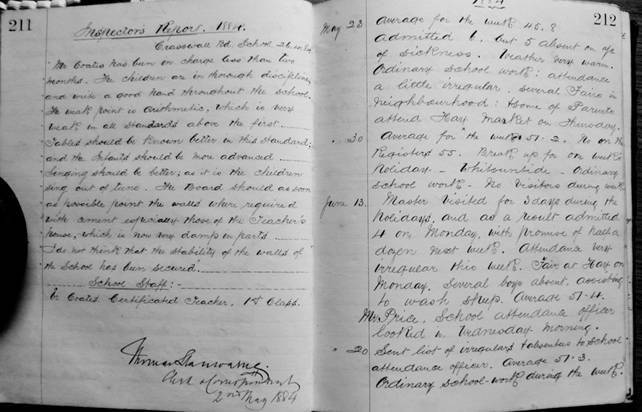 211
Inspector's Report, 1884.
Crasswall Bd. School 26.4.84
Mr Coates has been in charge less than two
months. The children are in thorough discipline,
and write a good hand throughout the school.
The weak point is arithmetic, which is very
weak in all Standards above the first.
Tables should be known better in this Standard;
and the Infants should be more advanced.
Singing should be better; as it is the children
sing out of tune. The Board should as soon
as possible point the walls where required
with cement especially those of the Teacher's
house, which is now very damp in parts.
I do not think that the stability of the walls of
the School has been secured.
School Staff:
Coates Certificated Teacher, 1st Class.
2nd May 1884
1884
212
May 23
average for the week 45.8
admitted 1, but 5 about on
of sickness. Weather very warm.
Ordinary School work: attendance
a little irregular. Several Fairs in
neighbourhood: Some of Parents
attend Hay Market on Thursday.
30
Average for the week 51.2. No on the
Registers 55. Break up for one week
holiday - Whitsuntide. Ordinary
school work. No Visitors during week
June 13
Master Visited for 3 days during the
Holidays, and as a result admitted
4 on Monday, with promise of half a
dozen next week. Attendance very
irregular this week. Fair at Hay on
Monday. Several boys absent, assisting
to wash sheep. Average 51.4.
Mr Price, School attendance officer
looked in Wednesday morning.
20
Sent list of irregulars & absentees to School
attendance officer. Average 51.3.
Ordinary school-work during the week.